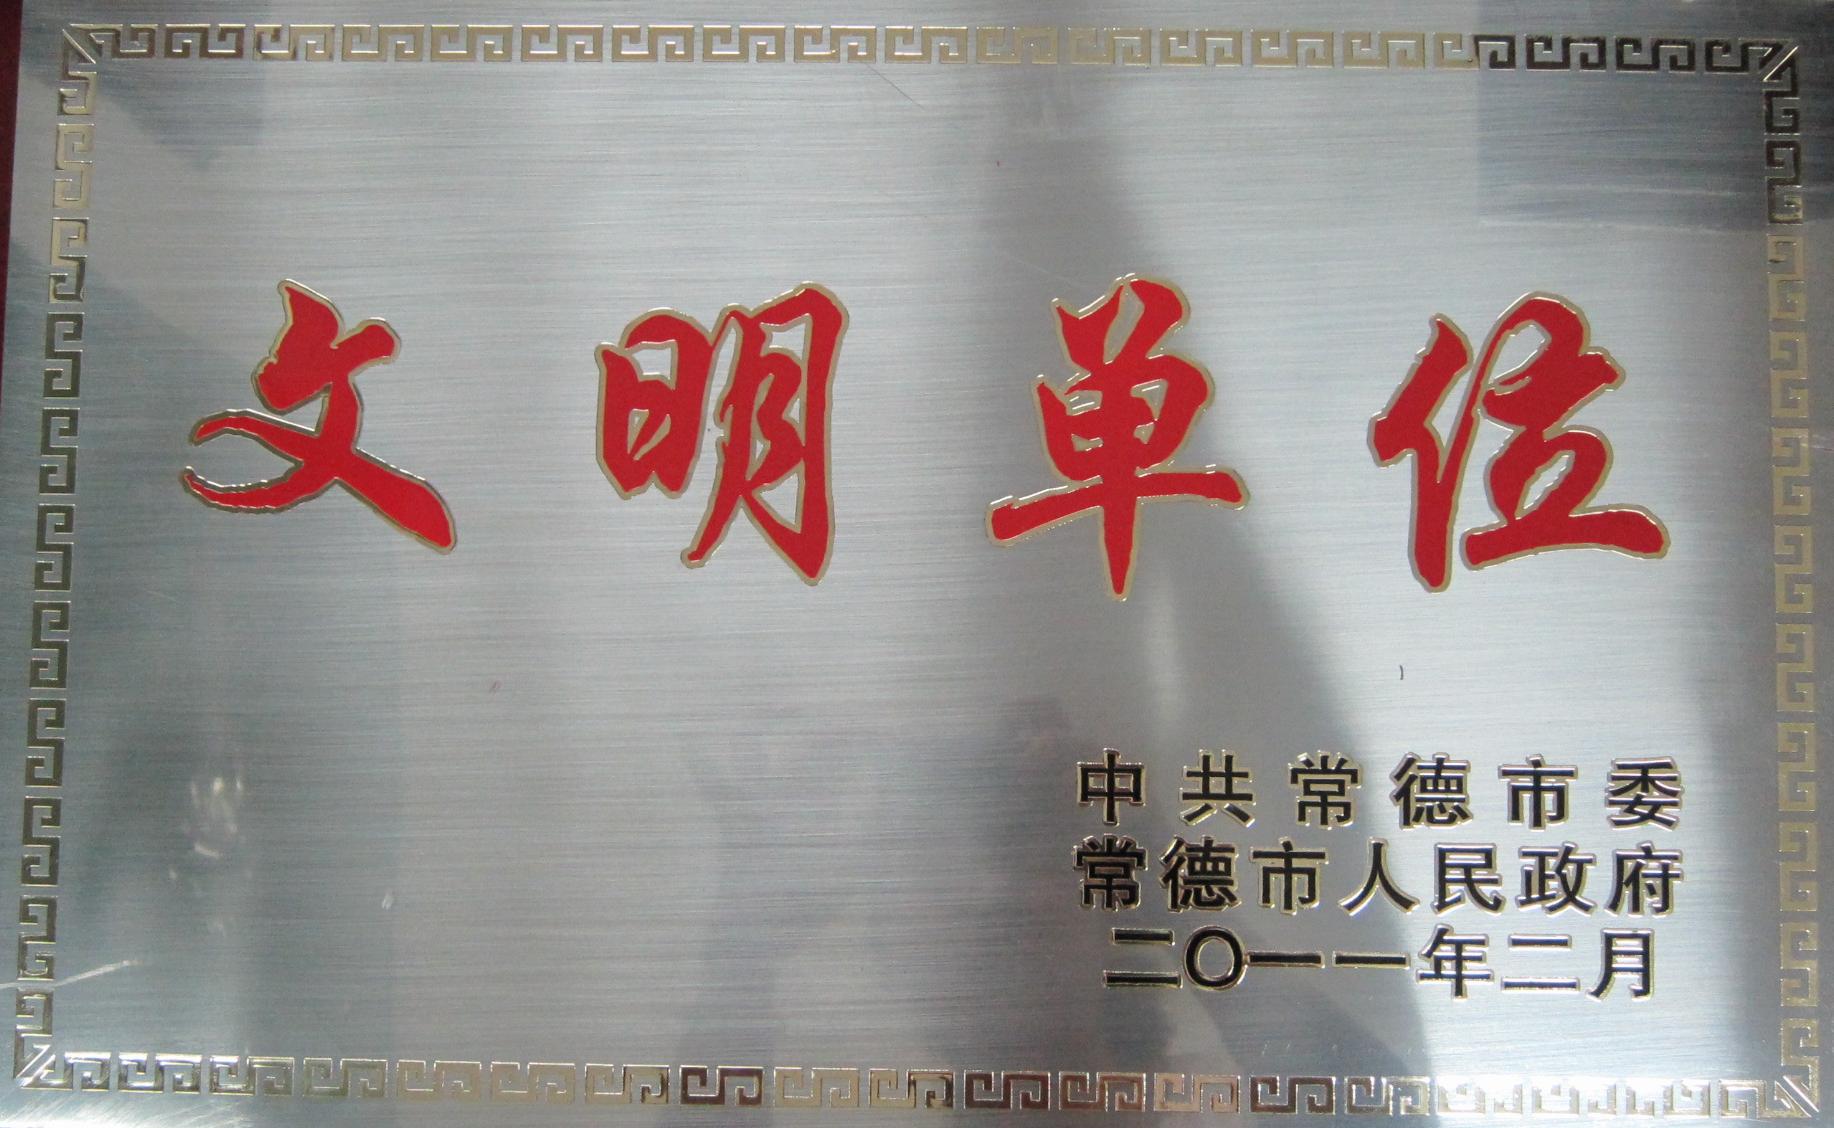 文明单位
中共常德市委
常德市人民政府
二〇一一年二月